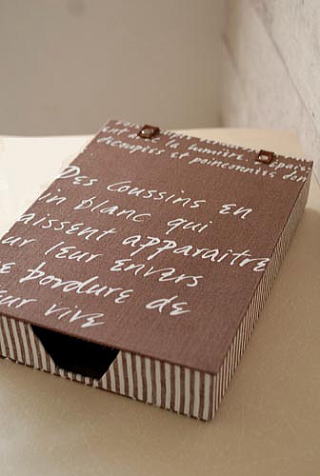 ent dans la lumière. Epais
découpées et poinçonnés den
Des coussins en
in blanc qui
aissent apparaitre
ur leur envers
e bordure de
eur vive